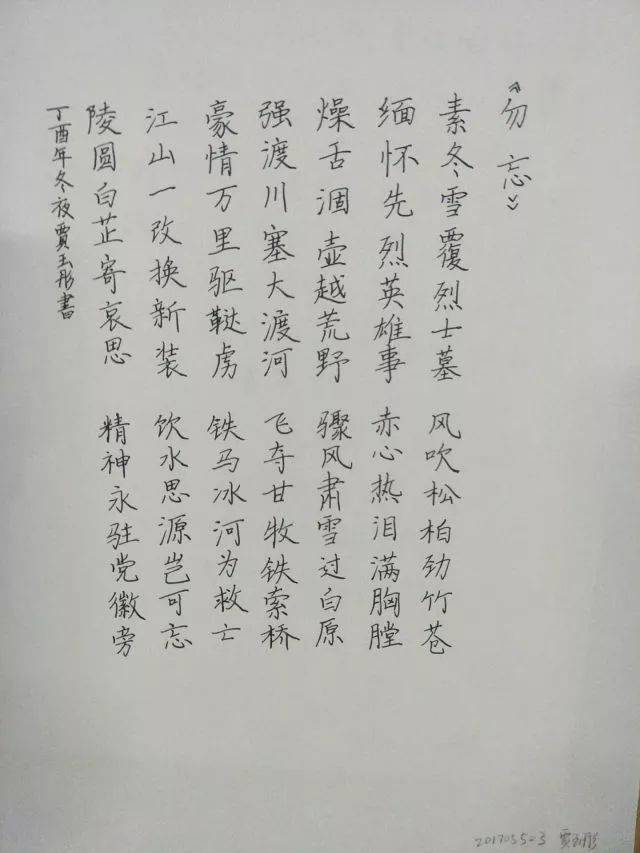 《勿忘》
素冬雪覆烈士墓 风吹松柏劲竹苍
缅怀先烈英雄事 赤心热泪满胸膛
燥舌涸壶越荒野 骤风肃雪过白原
强渡川塞大渡河 飞夺甘牧铁索桥
豪情万里驱鞑虏 铁马冰河为救亡
江山一改换新装 饮水思源岂可忘
陵圆白芷寄哀思 精神永驻党徽旁
丁酉年冬夜贾玉彤書
20170355-3 贾玉彤